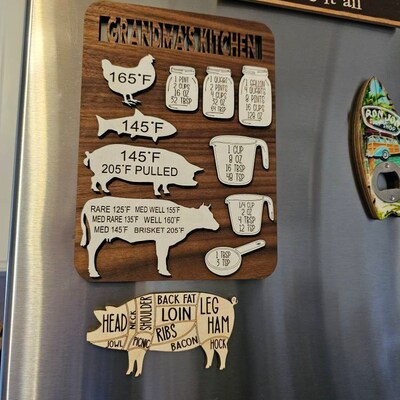 it all
GRANDMA'S KITCHEN
165°F
1 PINT
2 CUPS
16 OZ
32 TBSP
1 QUART
2 PINTS
4 CUPS
32 OZ
64 TBSP
1 GALLON
4 QUARTS
8 PINTS
16 CUPS
128 OZ
145°F
145°F
205°F PULLED
1 CUP
8 OZ
16 TBSP
48 TSP
RARE 125°F MED WELL 155°F
MED RARE 135°F WELL 160°F
MED 145°F BRISKET 205°F
1/4 CUP
2 OZ
4 TBSP
12 TSP
1 TBSP
3 TSP
RON JON
HEAD
JOWL
NECK
SHOULDER
PICNIC
BACK FAT
LOIN
RIBS
BACON
LEG
HAM
HOCK